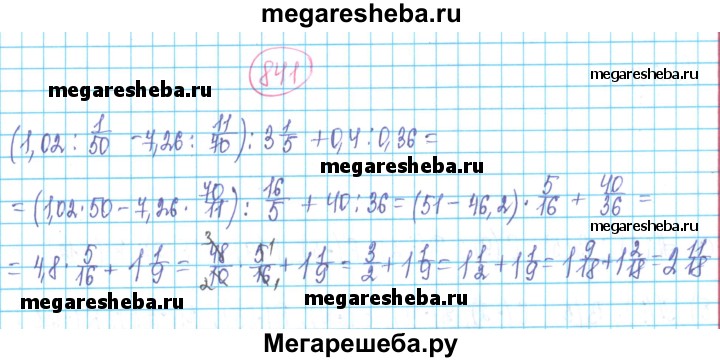 megaresheba.ru
841
megaresheba.ru
megaresheba.ru
(1,02 : 1/50 - 7,26 : 11/70) : 3 1/5 + 0,4 : 0,36 =
megaresheba.ru
= (1,02 · 50 - 7,26 · 70/11) : 16/5 + 40 : 36 = (51 - 46,2) · 5/16 + 40/36 =
megaresheba.ru
= 4,8 · 5/16 + 1 1/9 = 48/10 · 5/16 + 1 1/9 = 3/2 + 1 1/9 = 1 1/2 + 1 1/9 = 1 9/18 + 1 2/18 = 2 11/18
megaresheba.ru megaresheba.ru megaresheba.ru
Мегарешеба.ру